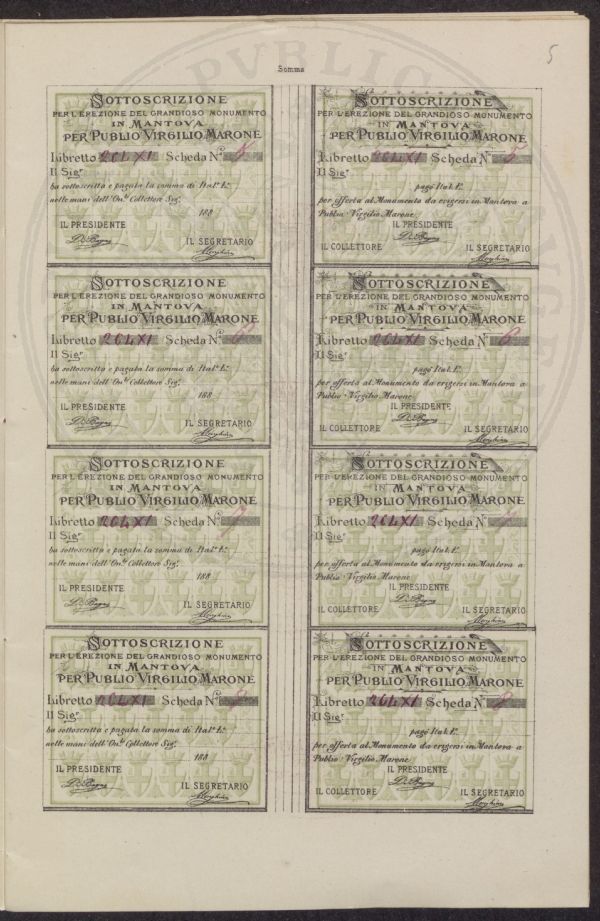 5
Somma
SOTTOSCRIZIONE
PER L'EREZIONE DEL GRANDIOSO MONUMENTO
IN MANTOVA
PER PUBLIO VIRGILIO MARONE
Libretto 264XI Scheda N° 5
Il Sigr
ha sottoscritta e pagata la somma di Ital.e L.e
nelle mani dell'On.le Collettore Sig.
188
IL PRESIDENTE
IL SEGRETARIO
SOTTOSCRIZIONE
PER L'EREZIONE DEL GRANDIOSO MONUMENTO
IN MANTOVA
PER PUBLIO VIRGILIO MARONE
Libretto 264XI Scheda N° 5
Il Sigr
pagò Ital. L.e
per offerta al Monumento da erigersi in Mantova a
Publio Virgilio Marone
IL PRESIDENTE
IL COLLETTORE IL SEGRETARIO
SOTTOSCRIZIONE
PER L'EREZIONE DEL GRANDIOSO MONUMENTO
IN MANTOVA
PER PUBLIO VIRGILIO MARONE
Libretto 264XI Scheda N° 6
Il Sigr
ha sottoscritta e pagata la somma di Ital.e L.e
nelle mani dell'On.le Collettore Sig.
188
IL PRESIDENTE
IL SEGRETARIO
SOTTOSCRIZIONE
PER L'EREZIONE DEL GRANDIOSO MONUMENTO
IN MANTOVA
PER PUBLIO VIRGILIO MARONE
Libretto 264XI Scheda N° 6
Il Sigr
pagò Ital. L.e
per offerta al Monumento da erigersi in Mantova a
Publio Virgilio Marone
IL PRESIDENTE
IL COLLETTORE IL SEGRETARIO
SOTTOSCRIZIONE
PER L'EREZIONE DEL GRANDIOSO MONUMENTO
IN MANTOVA
PER PUBLIO VIRGILIO MARONE
Libretto 264XI Scheda N° 7
Il Sigr
ha sottoscritta e pagata la somma di Ital.e L.e
nelle mani dell'On.le Collettore Sig.
188
IL PRESIDENTE
IL SEGRETARIO
SOTTOSCRIZIONE
PER L'EREZIONE DEL GRANDIOSO MONUMENTO
IN MANTOVA
PER PUBLIO VIRGILIO MARONE
Libretto 264XI Scheda N° 7
Il Sigr
pagò Ital. L.e
per offerta al Monumento da erigersi in Mantova a
Publio Virgilio Marone
IL PRESIDENTE
IL COLLETTORE IL SEGRETARIO
SOTTOSCRIZIONE
PER L'EREZIONE DEL GRANDIOSO MONUMENTO
IN MANTOVA
PER PUBLIO VIRGILIO MARONE
Libretto 264XI Scheda N° 8
Il Sigr
ha sottoscritta e pagata la somma di Ital.e L.e
nelle mani dell'On.le Collettore Sig.
188
IL PRESIDENTE
IL SEGRETARIO
SOTTOSCRIZIONE
PER L'EREZIONE DEL GRANDIOSO MONUMENTO
IN MANTOVA
PER PUBLIO VIRGILIO MARONE
Libretto 264XI Scheda N° 8
Il Sigr
pagò Ital. L.e
per offerta al Monumento da erigersi in Mantova a
Publio Virgilio Marone
IL PRESIDENTE
IL COLLETTORE IL SEGRETARIO